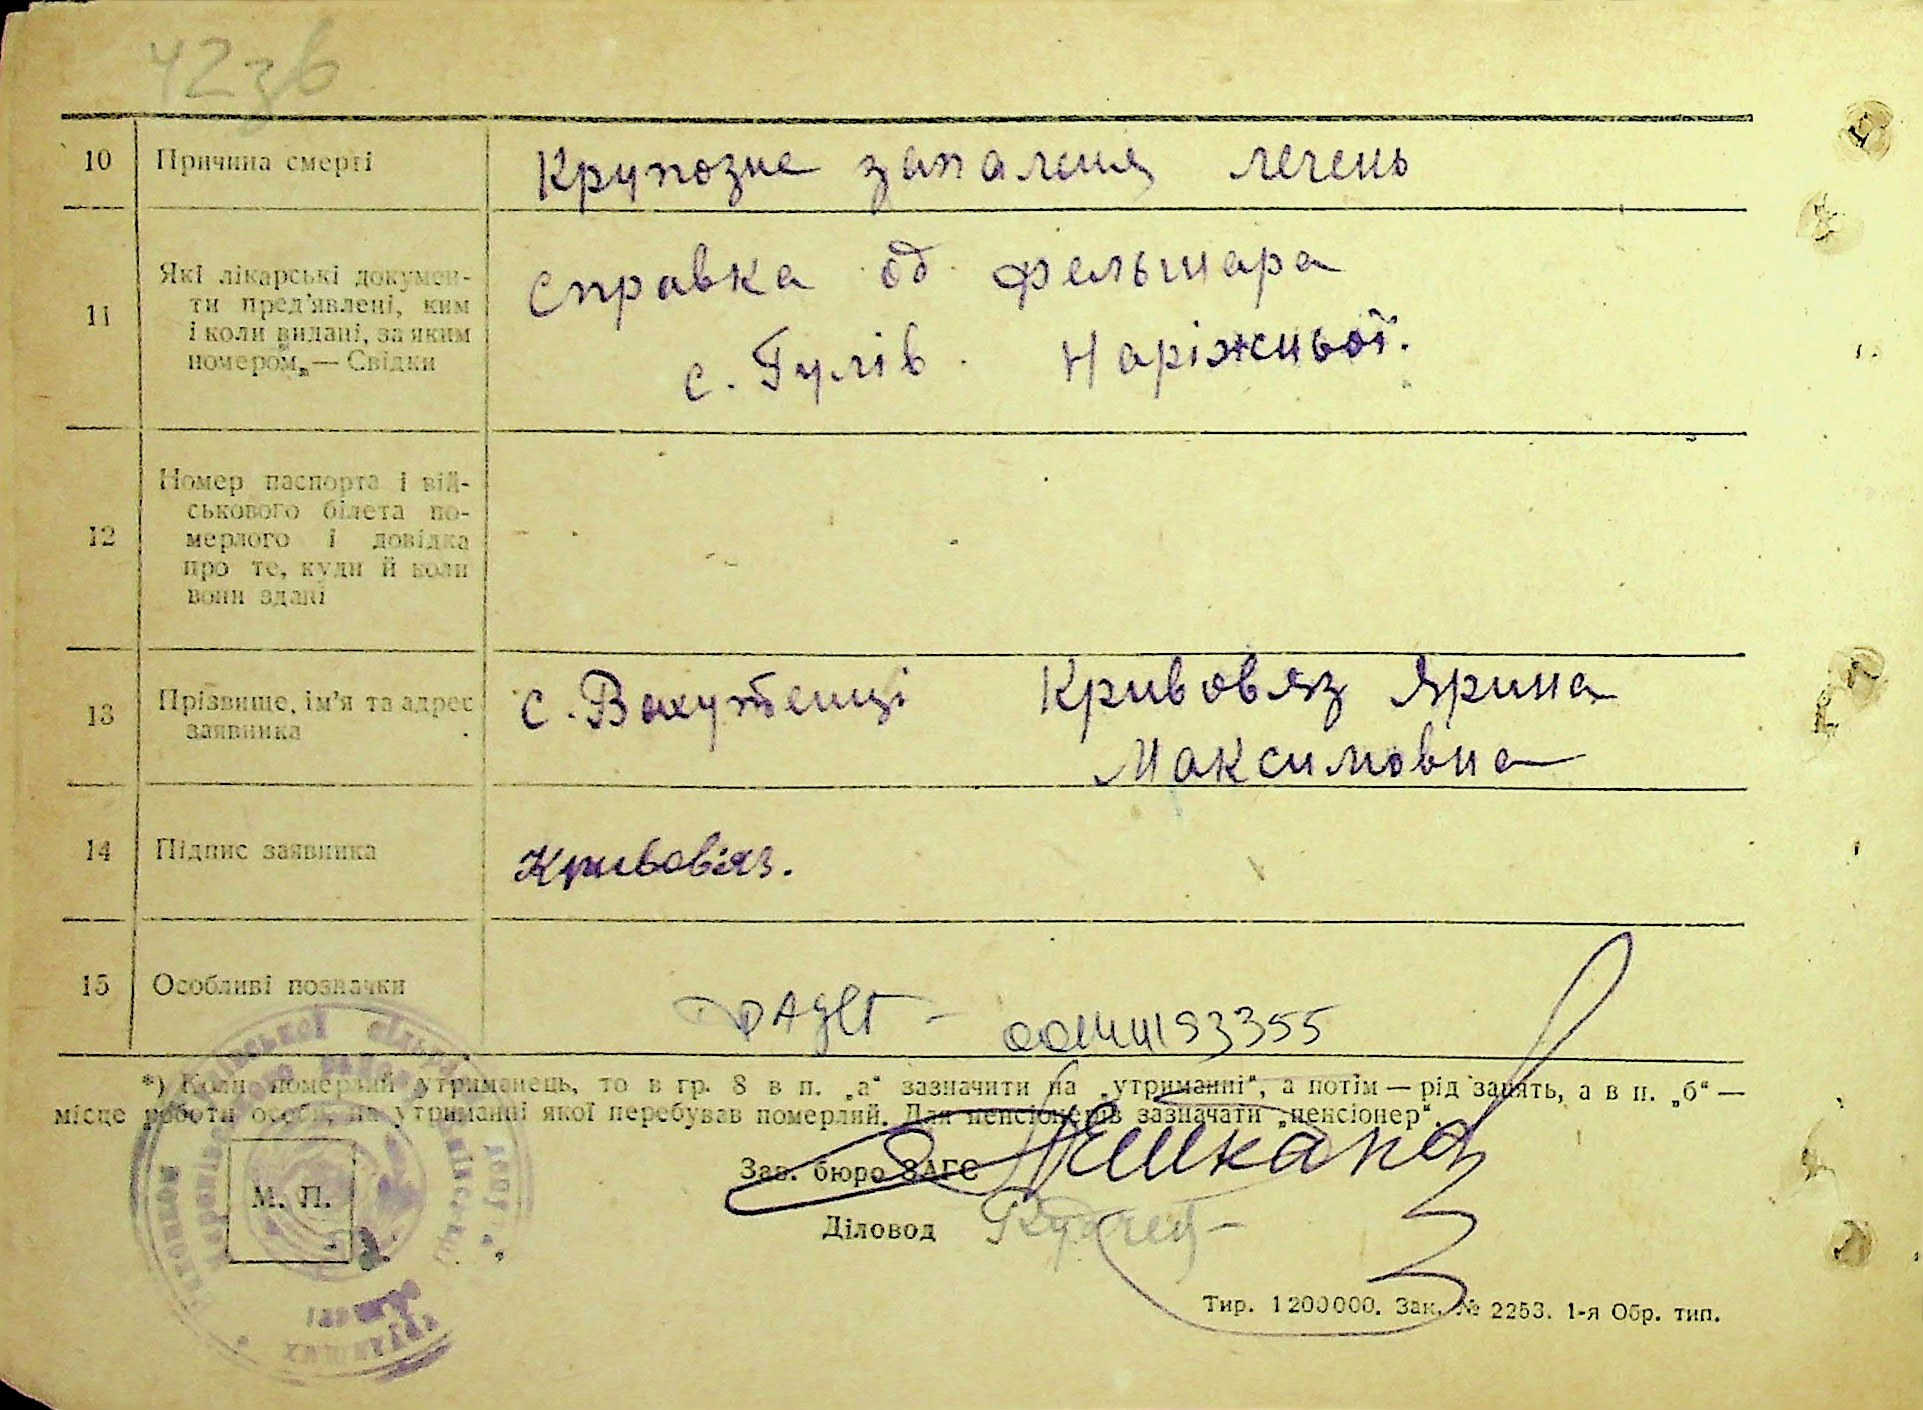 10 Причина смерті Крупозне запаленя легень
11 Які лікарські докумен-
ти пред'явлені, ким
і коли видані, за яким
номером,— Свідки
Справка од фельшара
с. Гулів. Наріжньої.
12 Номер паспорта і вій-
ськового білета по-
мерлого і довідка
про те, куди й коли
вони здані
13 Прізвище, ім'я та адрес
заявника
с. Вахутенці Кривовяз Ярина
Максимовна
14 Підпис заявника Кривов'яз.
15 Особливі позначки
*) Коли померлий утриманець, то в гр. 8 в п. „а“ зазначити на „утриманні“, а потім — рід занять, а в п. „б“ —
місце роботи особи, на утриманні якої перебував померлий. Для пенсіонерів зазначати „пенсіонер“.
Зав. бюро ЗАГС
М. П.
Діловод
Тир. 1200000. Зак. № 2253. 1-я Обр. тип.